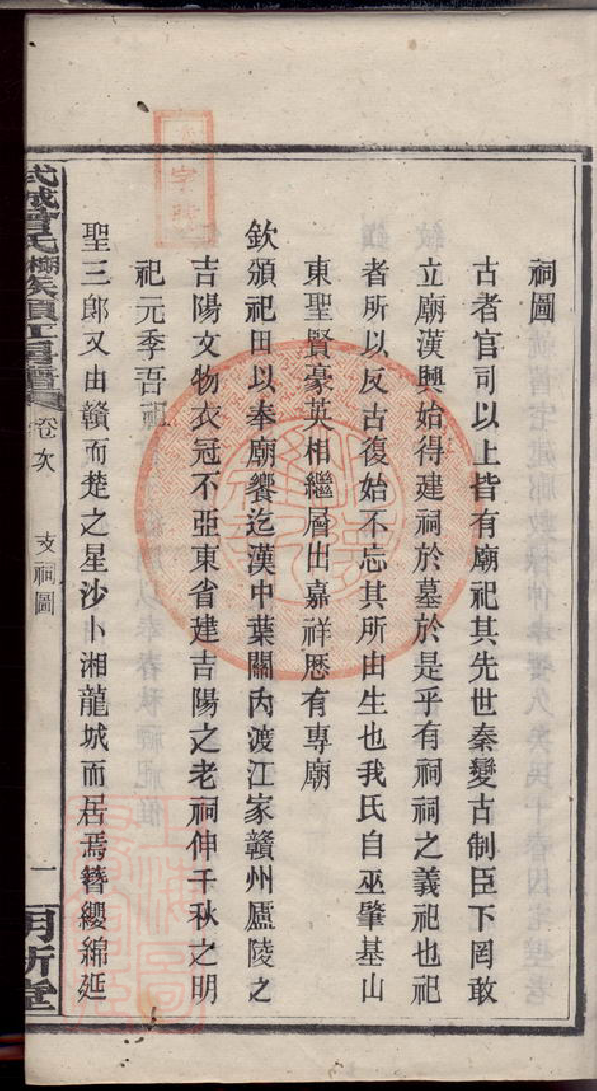 祠圖
古者官司以上皆有廟祀其先世秦變古制臣下罔敢
立廟漢興始得建祠於墓於是乎有祠祠之義祀也祀
者所以反古復始不忘其所由生也我氏自巫肇基山
東聖賢豪英相繼層出嘉祥歷有專廟
欽頒祀田以奉廟饗迄漢中葉關內渡江家贛州廬陵之
吉陽文物衣冠不亞東省建吉陽之老祠伸千秋之明
祀元季吾
聖三郎又由贛而楚之星沙卜湘龍城而居焉簪纓綿延
武城曾氏
卷次
支祠圖
一
明新堂
上海圖